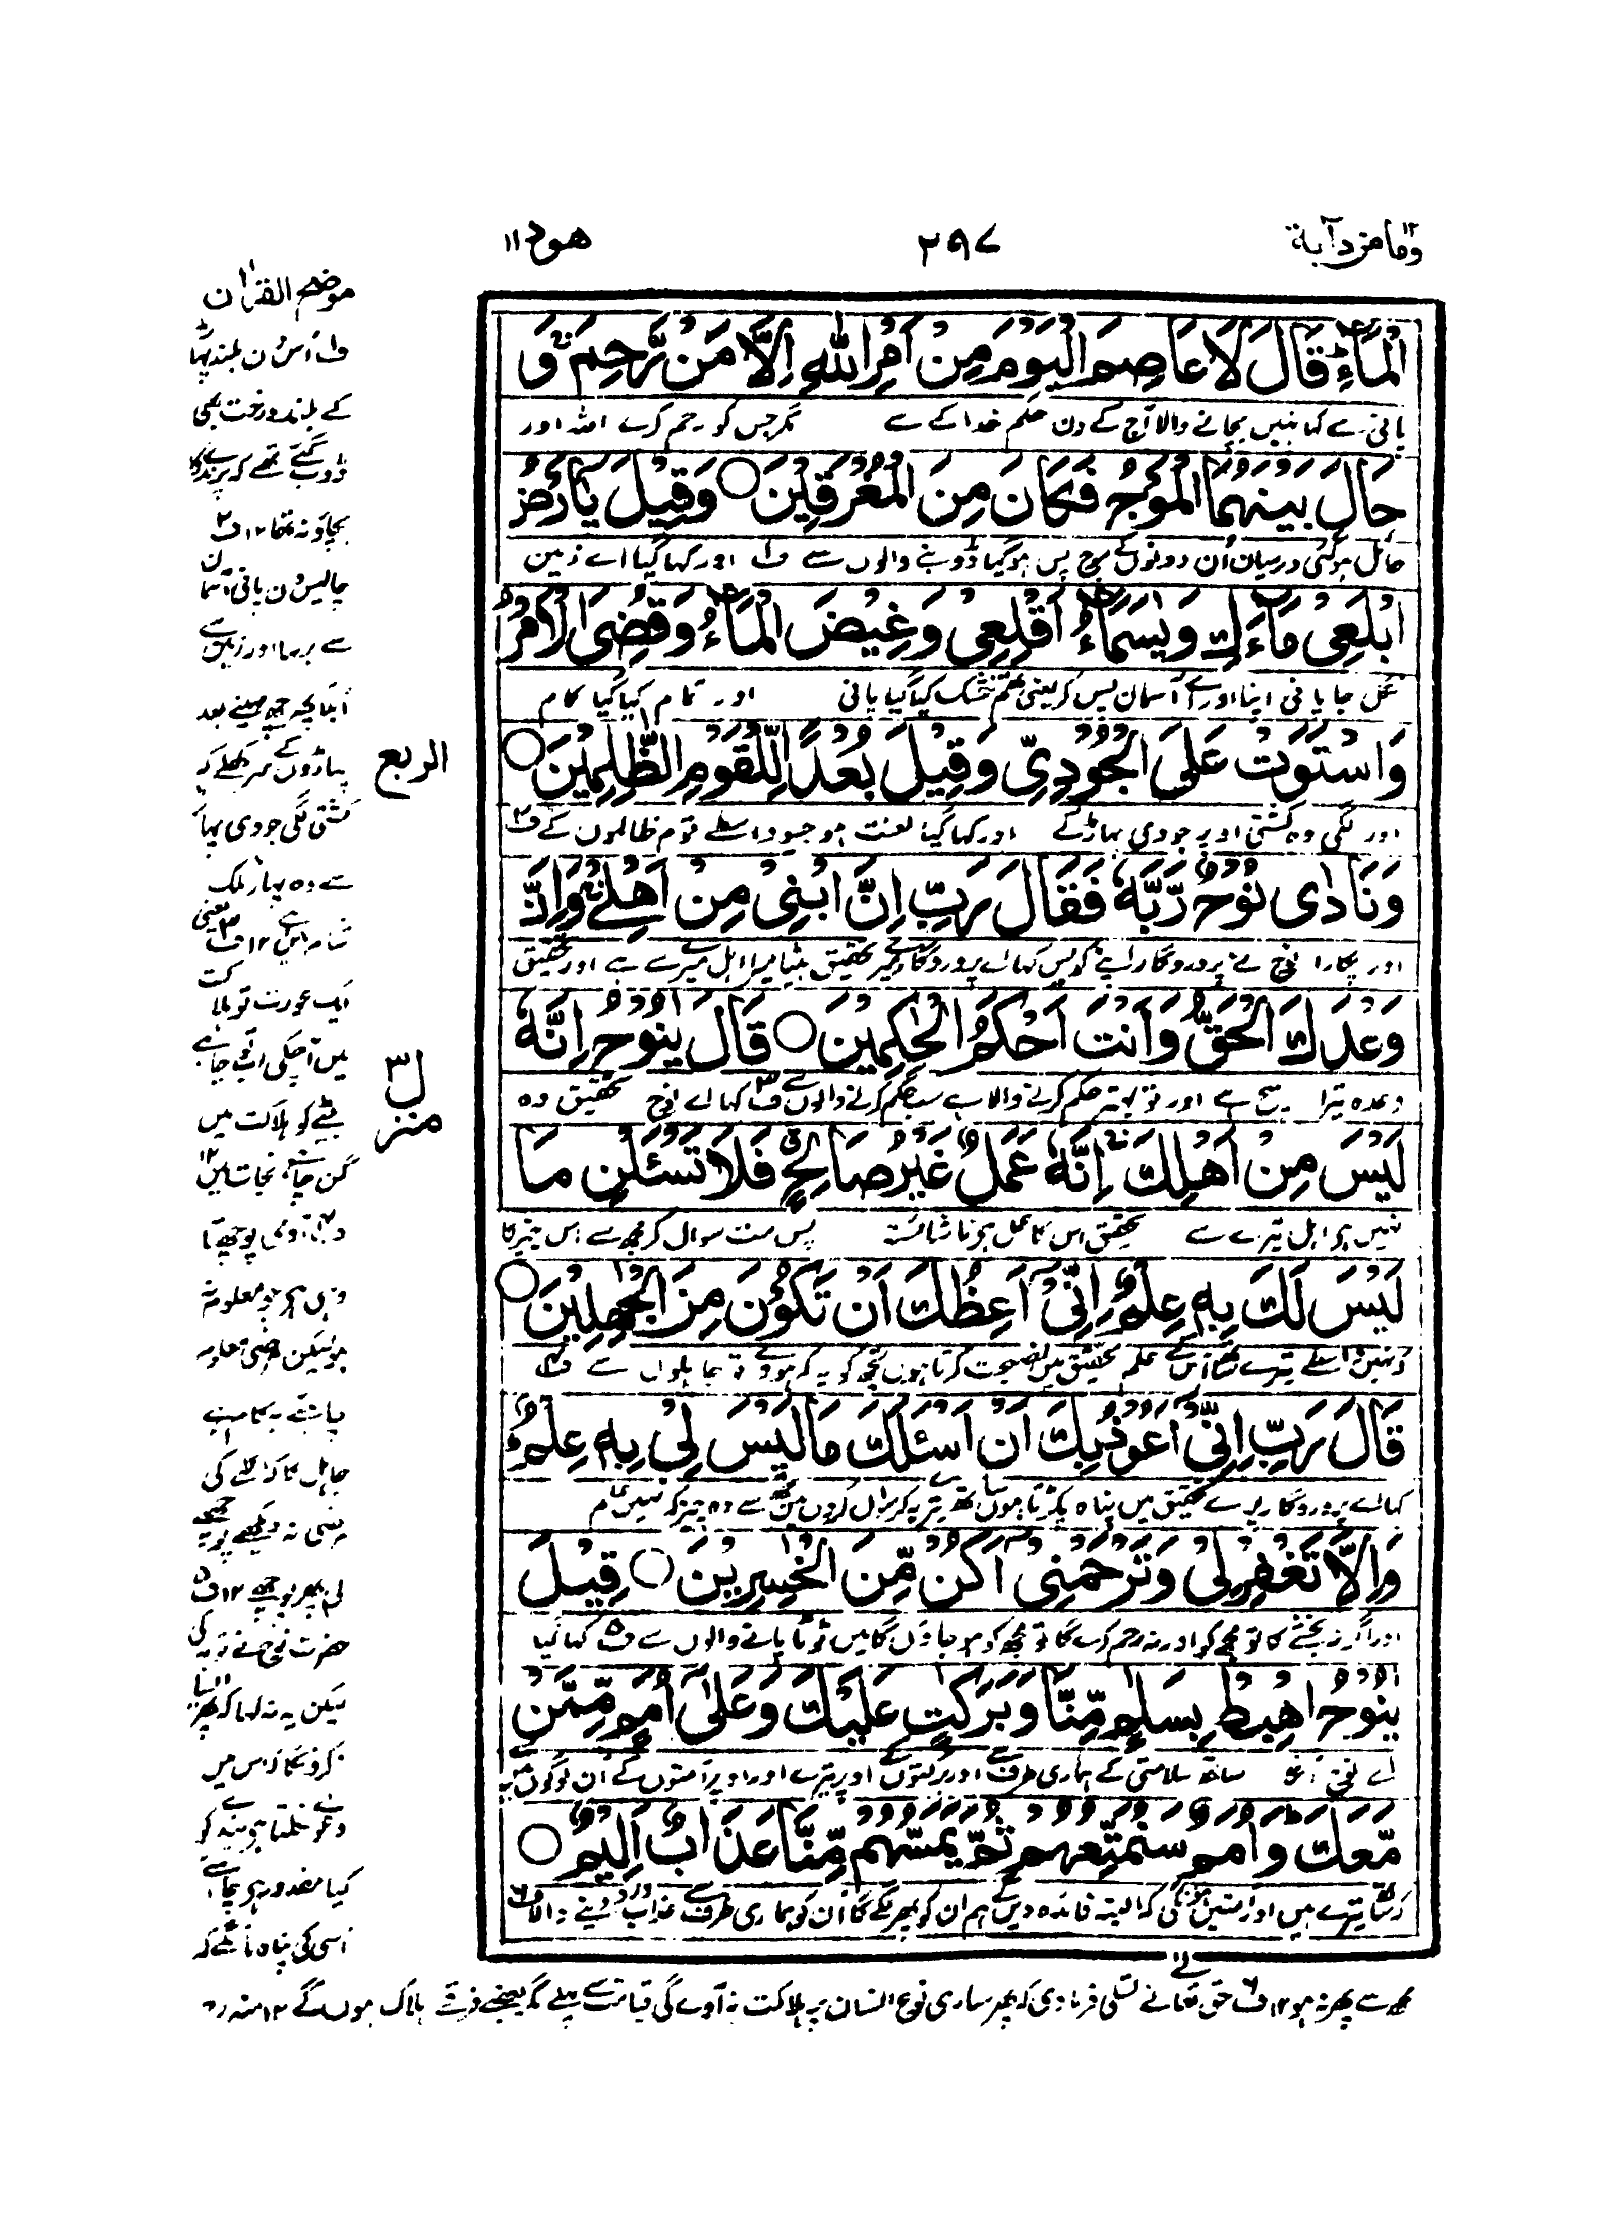 وما من دآبة ١٢
٢٩٧
هود ١١
الْمَآءِ قَالَ لَا عَاصِمَ الْيَوْمَ مِنْ اَمْرِ اللّٰهِ اِلَّا مَنْ رَّحِمَ وَ
پانی سے کہا نہیں بچانے والا آج کے دن حکم خدا کے سے مگر جس کو رحم کرے اللہ اور
حَالَ بَيْنَهُمَا الْمَوْجُ فَكَانَ مِنَ الْمُغْرَقِيْنَ ○ وَقِيْلَ يٰٓاَرْضُ
حائل ہوگئی درمیان اُن دونوں کے موج پس ہوگیا ڈوبنے والوں سے ف۱ اور کہا گیا اے زمین
ابْلَعِيْ مَآءَكِ وَيٰسَمَآءُ اَقْلِعِيْ وَغِيْضَ الْمَآءُ وَقُضِيَ الْاَمْرُ
نگل جا پانی اپنا اور اے آسمان بس کر یعنی تھم خشک کیا گیا پانی اور تمام کیا گیا کام
وَاسْتَوَتْ عَلَى الْجُوْدِيِّ وَقِيْلَ بُعْدًا لِّلْقَوْمِ الظّٰلِمِيْنَ ○
اور لگی وہ کشتی اوپر جودی پہاڑ کے اور کہا گیا لعنت ہو جیو واسطے قوم ظالموں کے ف۲
وَنَادٰى نُوْحٌ رَّبَّهٗ فَقَالَ رَبِّ اِنَّ ابْنِيْ مِنْ اَهْلِيْ وَاِنَّ
اور پکارا نوح نے پروردگار اپنے کو پس کہا اے پروردگار میرے تحقیق بیٹا میرا اہل میرے سے ہے اور تحقیق
وَعْدَكَ الْحَقُّ وَاَنْتَ اَحْكَمُ الْحٰكِمِيْنَ ○ قَالَ يٰنُوْحُ اِنَّهٗ
وعدہ تیرا سچ ہے اور تو بہتر حکم کرنے والا ہے سب حکم کرنے والوں سے ف۳ کہا اے نوح تحقیق وہ
لَيْسَ مِنْ اَهْلِكَ اِنَّهٗ عَمَلٌ غَيْرُ صَالِحٍ فَلَا تَسْـَٔلْنِ مَا
نہیں ہے اہل تیرے سے تحقیق اس کا عمل ہے ناشائستہ پس مت سوال کر مجھ سے اس چیز کا
لَيْسَ لَكَ بِهٖ عِلْمٌ اِنِّيْٓ اَعِظُكَ اَنْ تَكُوْنَ مِنَ الْجٰهِلِيْنَ ○
کہ نہیں واسطے تیرے ساتھ اُس کے علم تحقیق میں نصیحت کرتا ہوں تجھ کو یہ کہ ہووے تو جاہلوں سے ف۴
قَالَ رَبِّ اِنِّيْٓ اَعُوْذُ بِكَ اَنْ اَسْـَٔلَكَ مَا لَيْسَ لِيْ بِهٖ عِلْمٌ
کہا اے پروردگار میرے تحقیق میں پناہ پکڑتا ہوں ساتھ تیرے یہ کہ سوال کروں میں تجھ سے وہ چیز کہ نہیں علم
وَاِلَّا تَغْفِرْ لِيْ وَتَرْحَمْنِيْٓ اَكُنْ مِّنَ الْخٰسِرِيْنَ ○ قِيْلَ
اور اگر نہ بخشے گا تو مجھے کو اور نہ رحم کرے گا تو مجھ کو ہو جاؤں گا میں ٹوٹا پانے والوں سے ف۵ کہا گیا
يٰنُوْحُ اهْبِطْ بِسَلٰمٍ مِّنَّا وَبَرَكٰتٍ عَلَيْكَ وَعَلٰٓى اُمَمٍ مِّمَّنْ
اے نوح اُتر ساتھ سلامتی کے ہماری طرف سے اور برکتوں کے اوپر تیرے اور اوپر اُمتوں کے اُن لوگوں میں سے
مَّعَكَ وَاُمَمٌ سَنُمَتِّعُهُمْ ثُمَّ يَمَسُّهُمْ مِّنَّا عَذَابٌ اَلِيْمٌ ○
کہ ساتھ تیرے ہیں اور اُمتیں ہونگی کہ البتہ فائدہ دیں گے ہم ان کو پھر لگے گا اُن کو ہماری طرف سے عذاب درد دینے والا ف۶
الربع
منزل ٣
موضح القرآن
ف۱ اُس دن بلند پہاڑ
کے بلند درخت بھی
ڈوب گئے تھے کہ پرندے کا
بچاؤ نہ تھا ۱۲ ف۲
چالیس دن پانی آسمان
سے برسا اور زمین سے
اُبلا پھر چھ مہینے بعد
پہاڑوں کے سر کھلے کہ
کشتی لگی جودی پہاڑ
سے وہ پہاڑ ملک
شام میں ہے ۱۲ ف۳ یعنی
ایک عورت تو ہلاکت
میں آچکی اب تو چاہے
بیٹے کو ہلاکت میں
گن چاہے نجات میں ۱۲
ف۴ آدمی پوچھتا
وہی ہے جو معلوم نہ
ہو لیکن مرضی معلوم
چاہئے یہ کام ہے
جاہل کا کہ اگلے کی
مرضی نہ دیکھے پوچھنے کی
پھر پوچھے ۱۲ ف۵
حضرت نوح نے توبہ کی
لیکن یہ نہ کہا کہ پھر ایسا
نہ کروں گا کہ اس میں
دعویٰ نکلتا ہے بندے کو
کیا مقدور ہے چاہئے
اسی کی پناہ مانگے کہ
مجھ سے پھر نہ ہو ۱۲ ف۶ حق تعالیٰ نے تسلی فرمادی کہ پھر ساری نوع انسان پر ہلاکت نہ آوے گی قیامت سے پہلے مگر بعضے فرقے ہلاک ہوں گے ۱۲ منہ رح